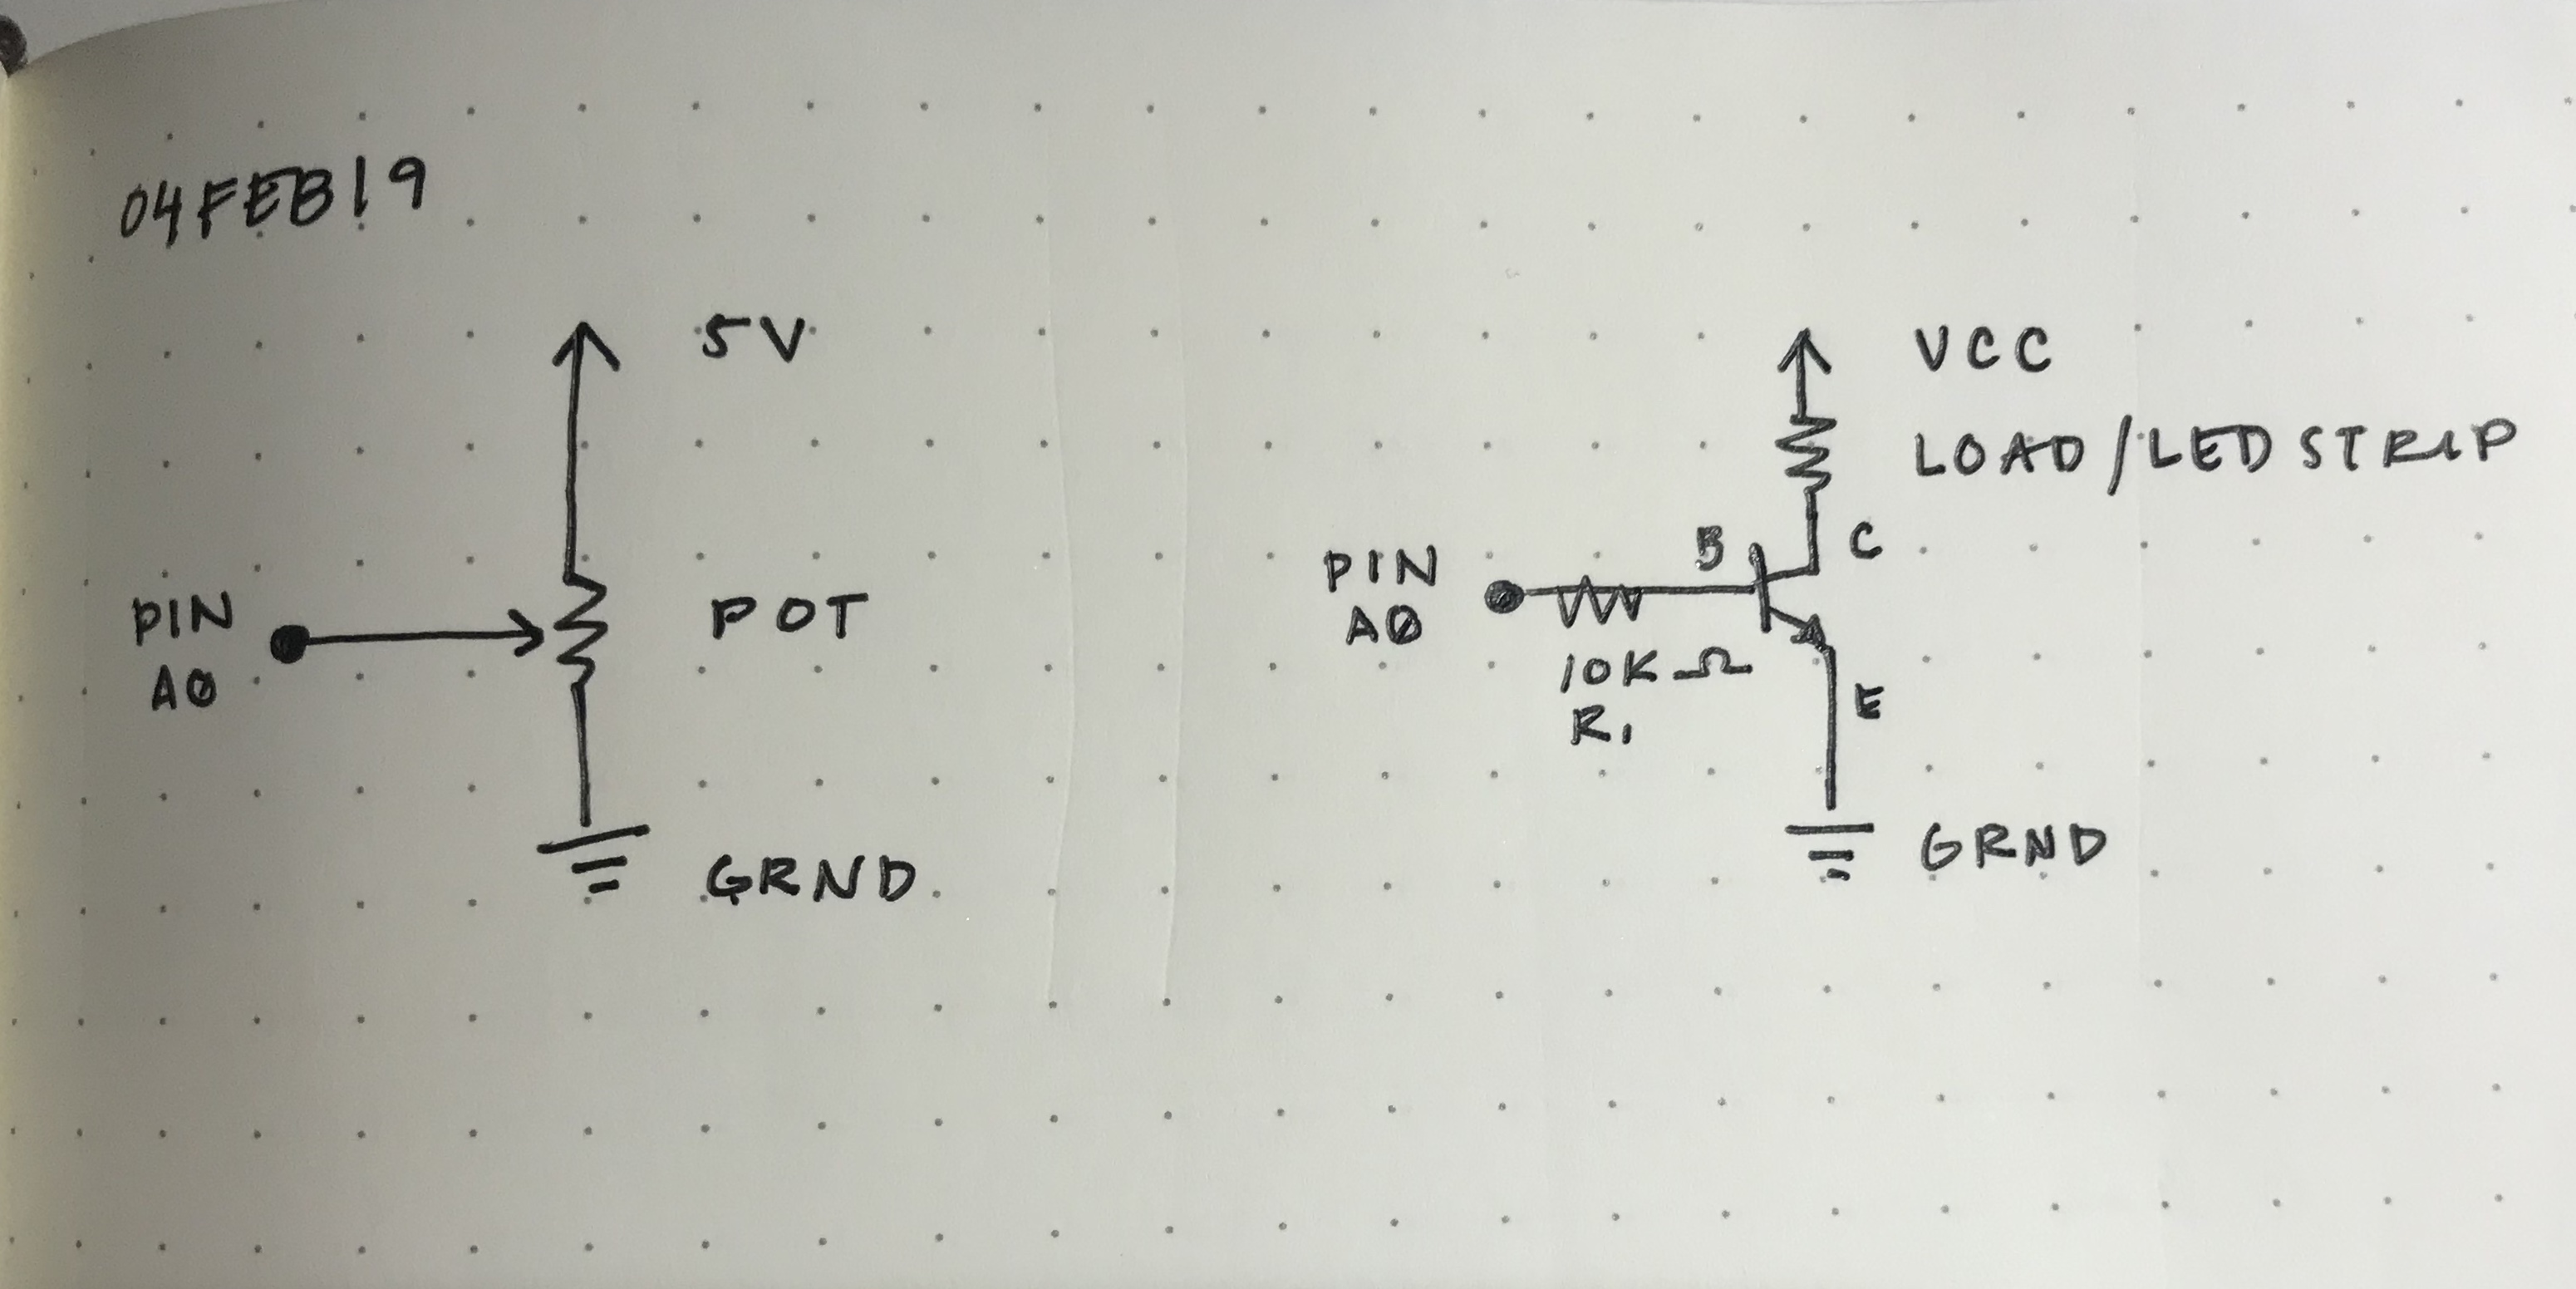 04FEB19
5V
PIN
A0
POT
GRND
VCC
LOAD/LED STRIP
B
C
PIN
A0
10K Ω
R1
E
GRND